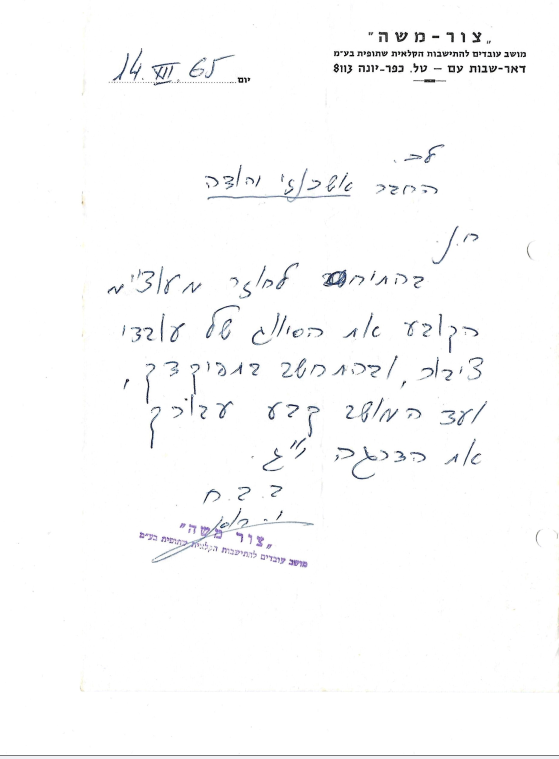 „צור-משה"
מושב עובדים להתישבות הקלאית שתופית בע"מ
דאר-שבות עם – טל. כפר-יונה 8113
יום 14. XII. 65
לכ.
החבר אשכנזי יהודה
ח.נ.
בהתיחס לחוזר מעוצ"מ
הקובע את הסווג של עובדי
ציבור, ובהתחשב בתפקידך,
ועד המושב קבע עבורך
את הדרגה י"ג.
ב.ב.ח
„צור משה"
מושב עובדים להתישבות הקלאית שתופית בע"מ